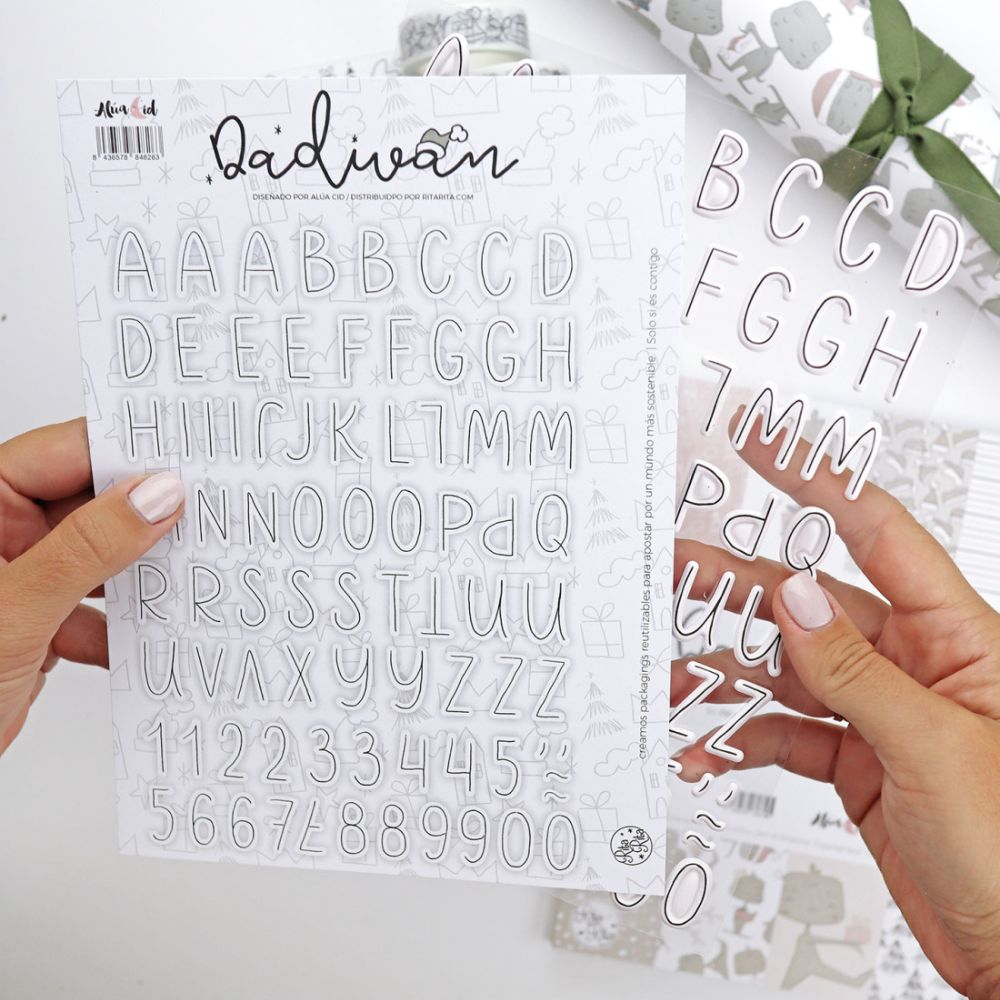 Alúa Cid
8 436578 848263
Dadiván
DISEÑADO POR ALÚA CID / DISTRIBUIDPO POR RITARITA.COM
A A A B B C C D
D E E E F F G G H
H I I I J J K L L M M
N N O O O P P Q
R R S S S T T U U
U V V X Y Y Z Z Z
1 1 2 2 3 3 4 4 5 ' ' ~
5 6 6 7 7 8 8 9 9 0 0 ~
creamos packagings reutilizables para apostar por un mundo más sostenible | Solo si es contigo
Rita Rita
B C C D
F G G H
L M M
P P Q
U U
Z Z
' ' ~ ~
0
Alúa